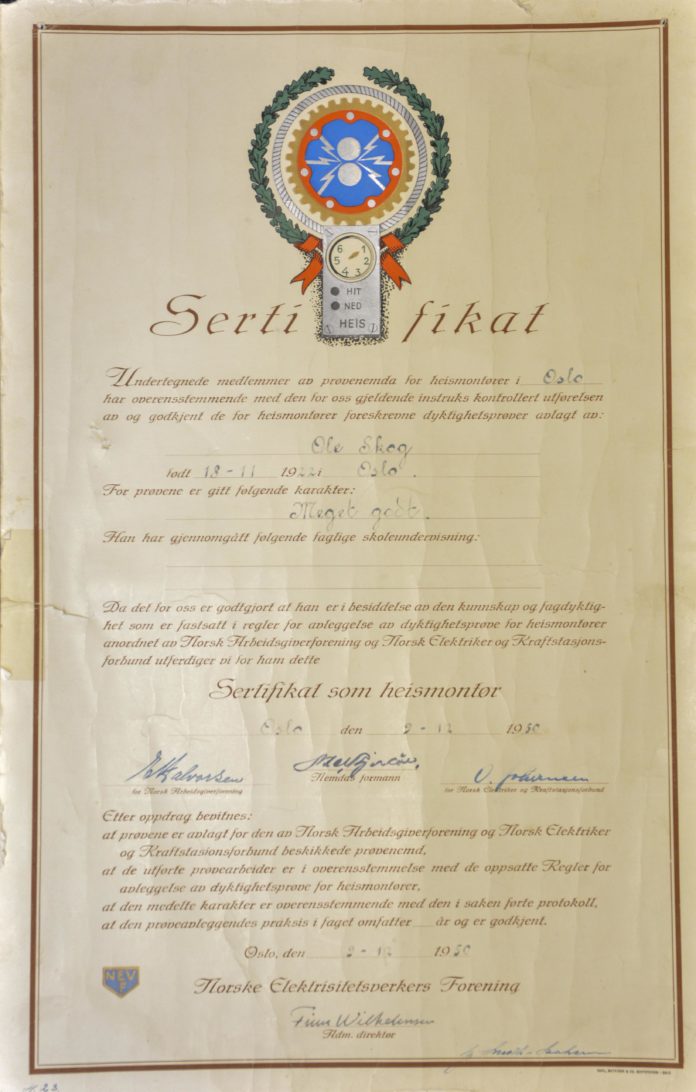 6 1
5 2
4 3
HIT
NED
HEIS
Sertifikat
Undertegnede medlemmer av prøvenemda for heismontører i Oslo
har overensstemmende med den for oss gjeldende instruks kontrollert utførelsen
av og godkjent de for heismontører foreskrevne dyktighetsprøver avlagt av:
Ole Skog
født 18-11 1922 i Oslo.
For prøvene er gitt følgende karakter:
Meget godt.
Han har gjennomgått følgende faglige skoleundervisning:
Da det for oss er godtgjort at han er i besiddelse av den kunnskap og fagdyktig-
het som er fastsatt i regler for avleggelse av dyktighetsprøve for heismontører
anordnet av Norsk Arbeidsgiverforening og Norsk Elektriker og Kraftstasjons-
forbund utferdiger vi for ham dette
Sertifikat som heismontør
Oslo den 9-12 1950
for Norsk Arbeidsgiverforening Nemdas formann for Norsk Elektriker og Kraftstasjonsforbund
Etter oppdrag bevitnes:
at prøvene er avlagt for den av Norsk Arbeidsgiverforening og Norsk Elektriker
og Kraftstasjonsforbund beskikkede prøvenemd,
at de utførte prøvearbeider er i overensstemmelse med de oppsatte Regler for
avleggelse av dyktighetsprøve for heismontører,
at den medelte karakter er overensstemmende med den i saken førte protokoll,
at den prøveavleggendes praksis i faget omfatter år og er godkjent.
Oslo, den 9-12 1950
NEV
F
Norske Elektrisitetsverkers Forening
Finn Wilhelmsen
Adm. direktør